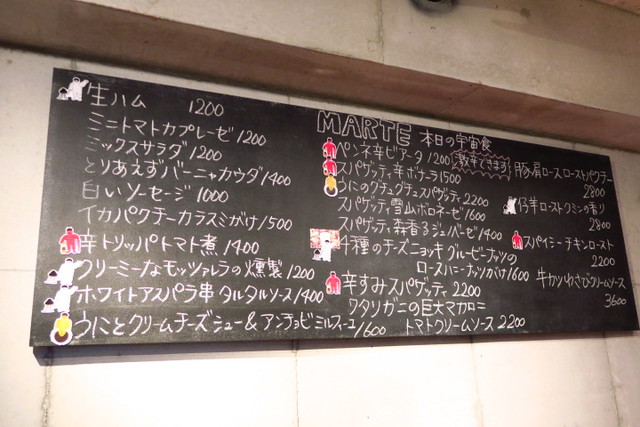 生ハム 1200
ミニトマトカプレーゼ 1200
ミックスサラダ 1200
とりあえずバーニャカウダ 1400
白いソーセージ 1000
イカパクチーカラスミがけ 1500
辛トリッパトマト煮 1400
クリーミーなモッツァレラの燻製 1200
ホワイトアスパラ串 タルタルソース 1400
うにとクリームチーズシュー&アンチョビミルフィーユ 1600
MARTE 本日の宇宙食
ペンネ辛ビアータ 1200 激辛できます!
スパゲッティ辛ボナーラ 1500
うにのグチュグチュスパゲッティ 2200
スパゲッティ雪山ボロネーゼ 1600
スパゲッティ森香るジェノバーゼ 1400
4種のチーズニョッキ グルービーナッツの
ローストハニーナッツがけ 1600
辛すみスパゲッティ 2200
ワタリガニの巨大マカロニ
トマトクリームソース 2200
豚肩ロースローストパクチー
2800
仔羊ローストクミンの香り
2800
スパイシーチキンロースト
2200
牛カツわさびクリームソース
3600